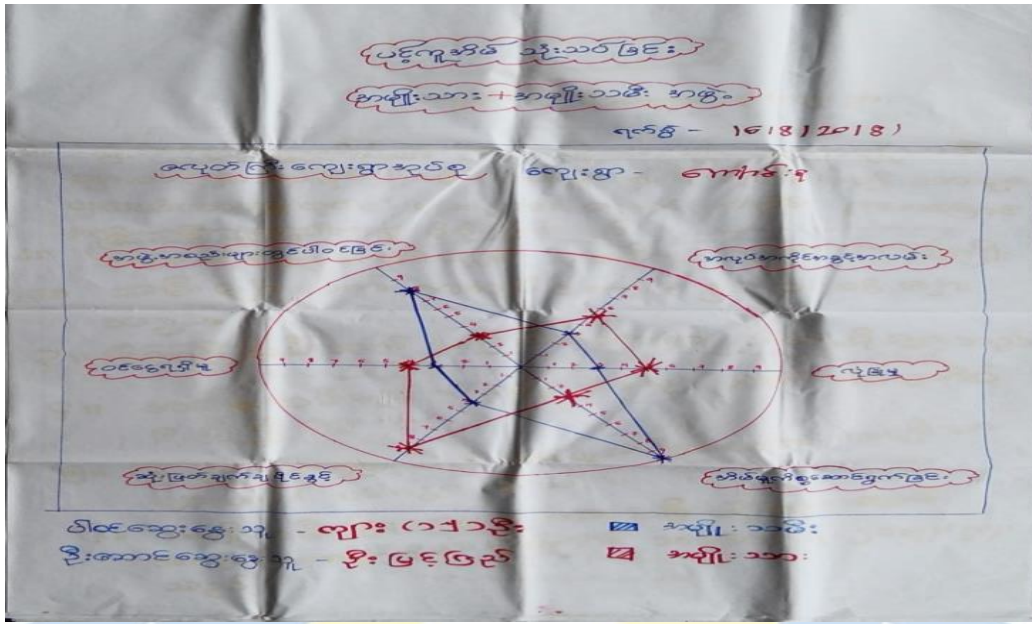 ပင့်ကူအိမ် သုံးသပ်ခြင်း
အမျိုးသား + အမျိုးသမီး အဖွဲ့
ရက်စွဲ - 16/8/2018)
ကျေးရွာအုပ်စု ကျေးရွာ - ကျောင်းစု
အဖွဲ့အစည်းများတွင်ပါဝင်ခြင်း အလုပ်အကိုင်အခွင့်အလမ်း
ဝင်ငွေရရှိမှု လုံခြုံမှု
ဆုံးဖြတ်ချက်ချနိုင်ခွင့် အိမ်မှုကိစ္စဆောင်ရွက်ခြင်း
ပါဝင်ဆွေးနွေးသူ - ကျား (၁၂)ဦး အမျိုးသမီး
ဦးဆောင်ဆွေးနွေးသူ - ဦးမြင့်ကြည် အမျိုးသား